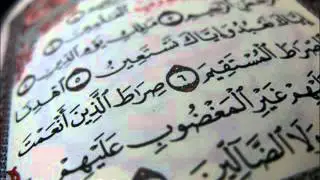 إِيَّاكَ نَعْبُدُ وَإِيَّاكَ نَسْتَعِينُ ۝ اهْدِنَا
الصِّرَاطَ الْمُسْتَقِيمَ ۝ صِرَاطَ الَّذِينَ أَنْعَمْتَ
عَلَيْهِمْ غَيْرِ الْمَغْضُوبِ عَلَيْهِمْ
وَلَا الضَّالِّينَ